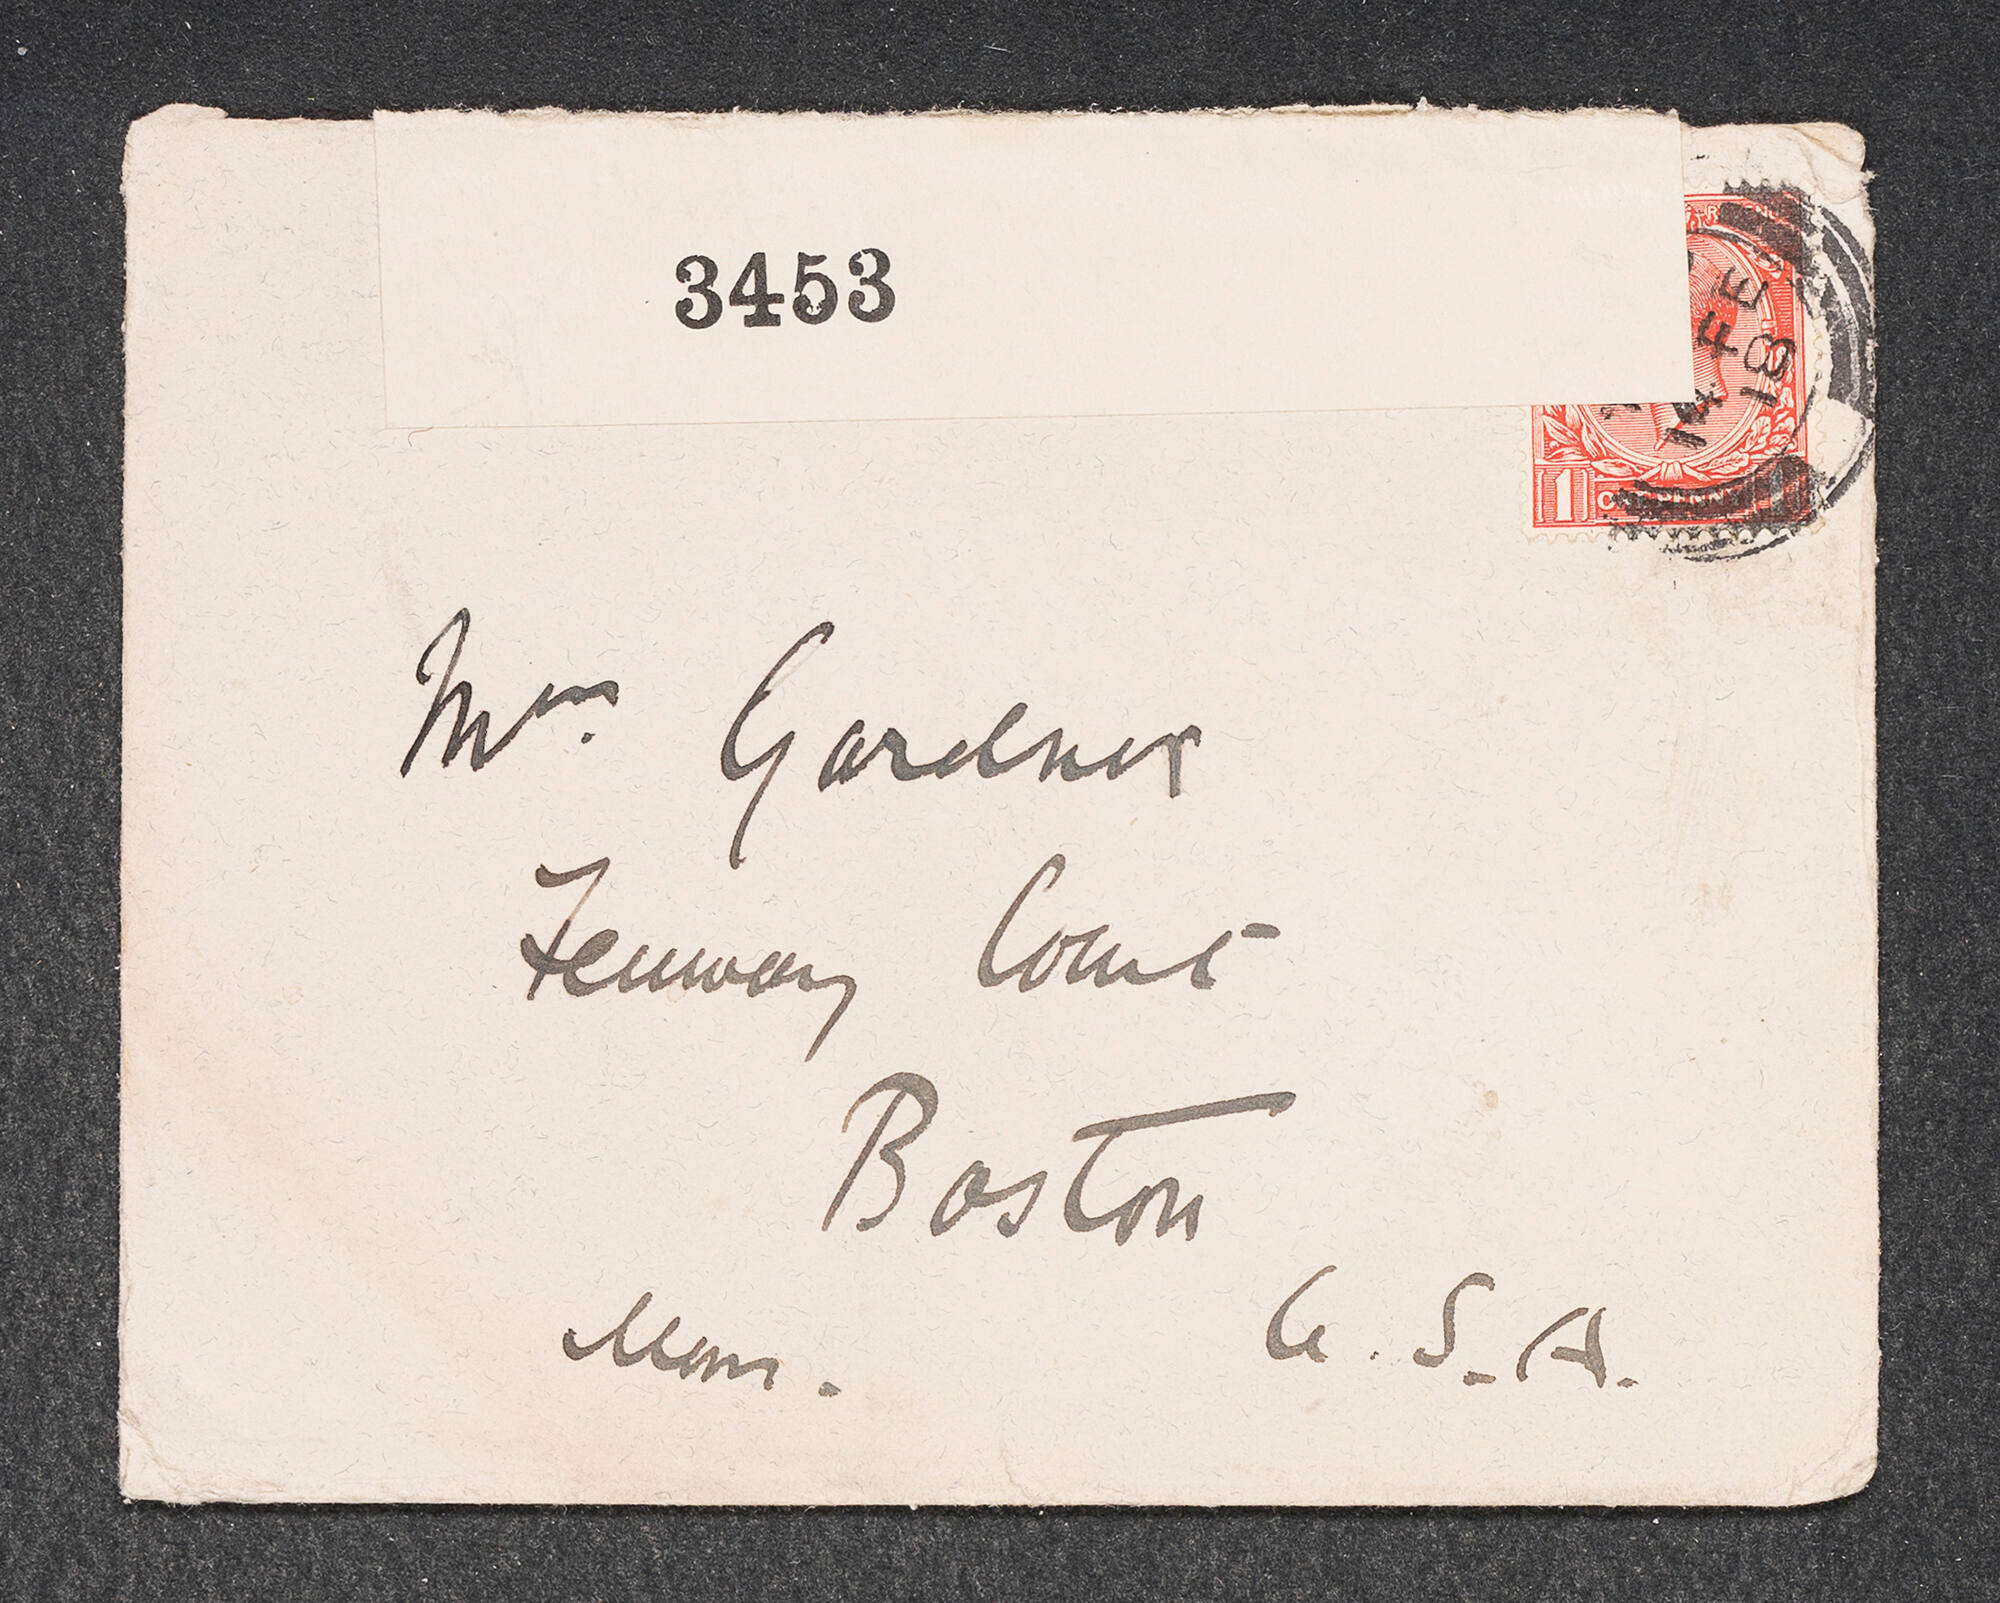 3453
REVENUE
14 FE
18
1 ONE PENNY 1
Mrs. Gardner
Fenway Court
Boston
Mass. U.S.A.